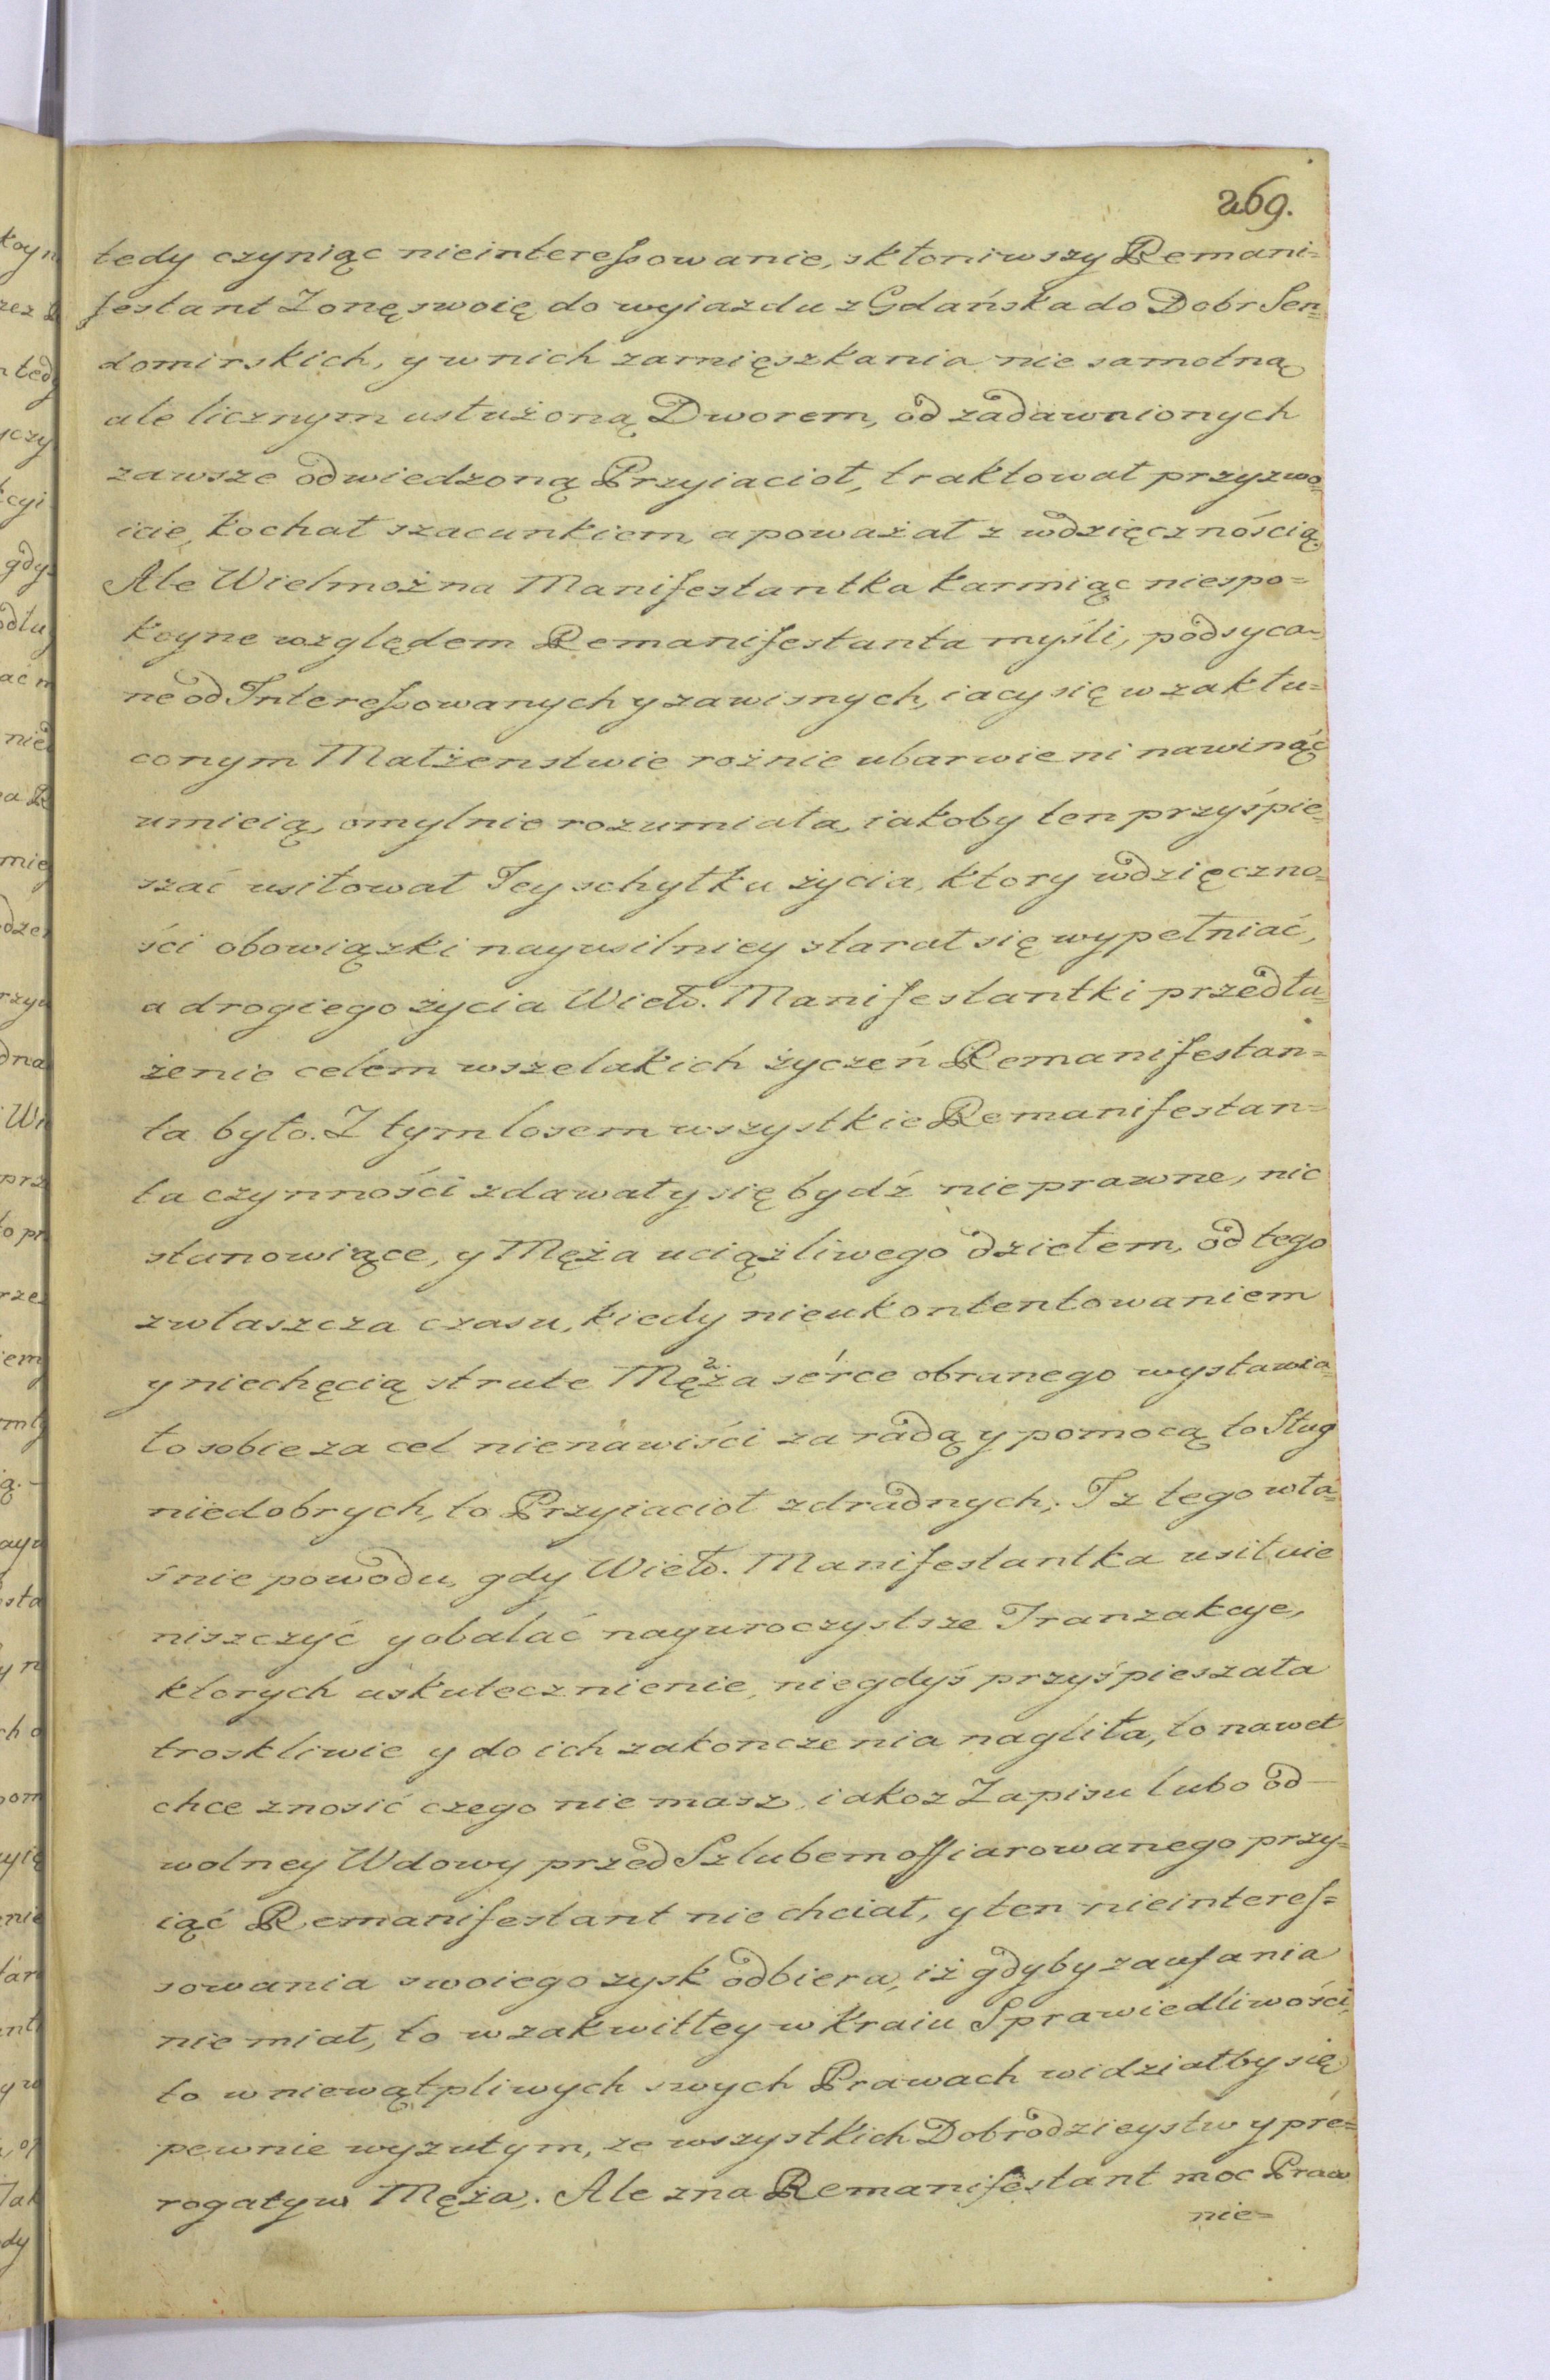 269.
tedy czyniąc nieinteressowanie, skłoniwszy Remani=
festant Zonę swoię do wyiazdu z Gdańska do Dobr Sen=
domirskich, y w nich zamięszkania nie samotną
ale licznym usłużoną Dworem, od zadawnionych
zawsze odwiedzoną Przyiacioł, traktował przyzwo=
icie, kochał szacunkiem, a poważał z wdzięcznością,
Ale Wielmożna Manifestantka karmiąc niespo=
koyne względem Remanifestanta myśli, podsyca=
ne od Interessowanych y zawisnych, iacy się w zakłu=
conym Małżenstwie rożnie ubarwieni nawinąć
umieią, omylnie rozumiała, iakoby ten przyśpie=
szać usiłował Jey schyłku życia, ktory wdzięczno=
ści obowiązki nayusilniey starał się wypełniać,
a drogiego życia Wielo. Manifestantki przedłu=
żenie celem wszelakich życzeń Remanifestan=
ta było. Z tym losem wszystkie Remanifestan=
ta czynności zdawały się bydź nieprawne, nic
stanowiące, y Męża uciążliwego dziełem, od tego
zwłaszcza czasu, kiedy nieukontentowaniem
y niechęcią strute Męża 2. serce 1 obranego wystawia=
ło sobie za cel nienawiści za radą y pomocą to Sług
niedobrych, to Przyiacioł zdradnych; I z tego wła=
śnie powodu, gdy Wielo. Manifestantka usiłuie
niszczyć y obalać nayuroczystsze Tranzakcye,
ktorych uskutecznienie, niegdyś przyśpieszała
troskliwie y do ich zakonczenia nagliła, to nawet
chce znosić czego nie masz, iakoz Zapisu lubo od
wolney Wdowy przed Szlubem offiarowanego przy=
iąć Remanifestant nie chciał, y ten nieinteres=
sowania swoiego zysk odbiera, iż gdyby zaufania
nie miał, to w zakwitłey w Kraiu Sprawiedliwości,
to w niewątpliwych swych Prawach widziałby się
pewnie wyzutym, ze wszystkich Dobrodzieystw y pre=
rogatyw Męża. Ale zna Remanifestant moc Praw
nie=